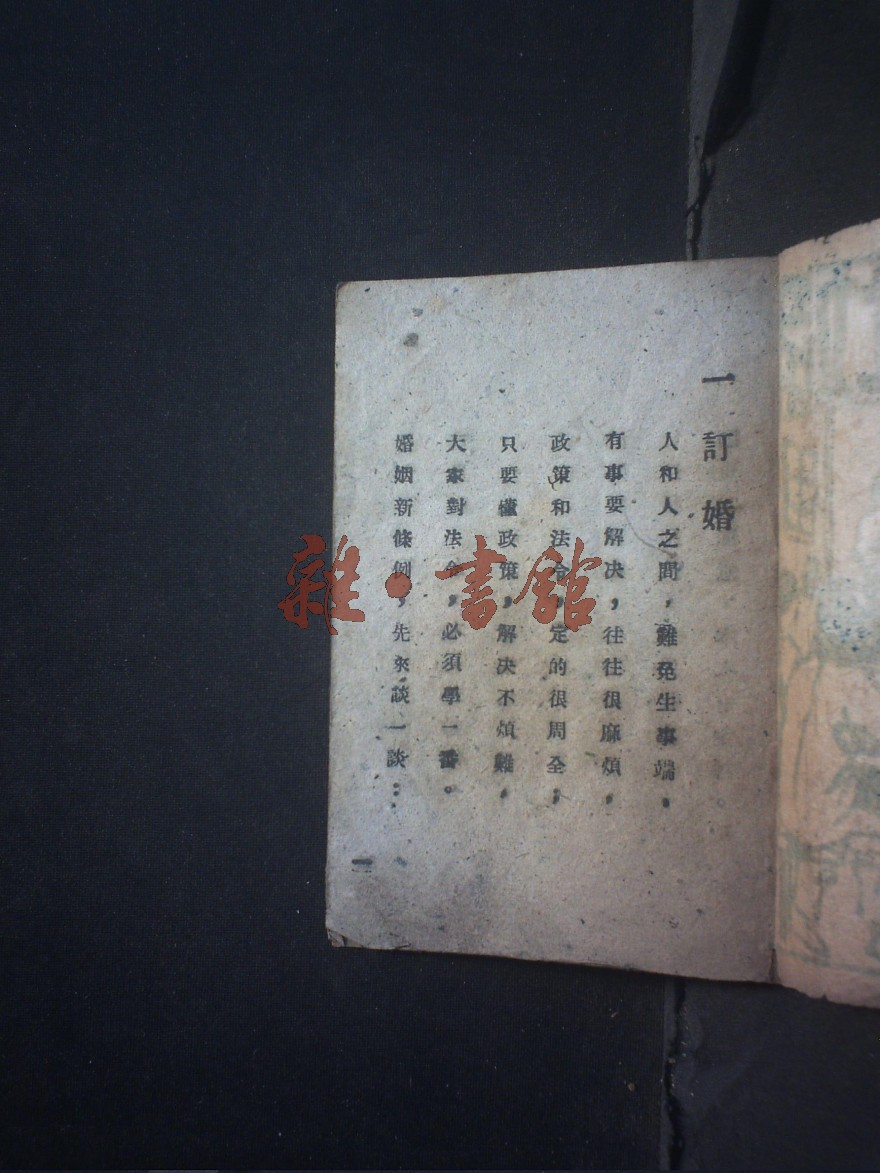 一 訂婚
人和人之間，難免生事端，
有事要解决，往往很麻煩，
政策和法令，定的很周全；
只要懂政策，解决不煩難，
大家對法令，必須學一番。
婚姻新條例，先來談一談：
一
雜·書館